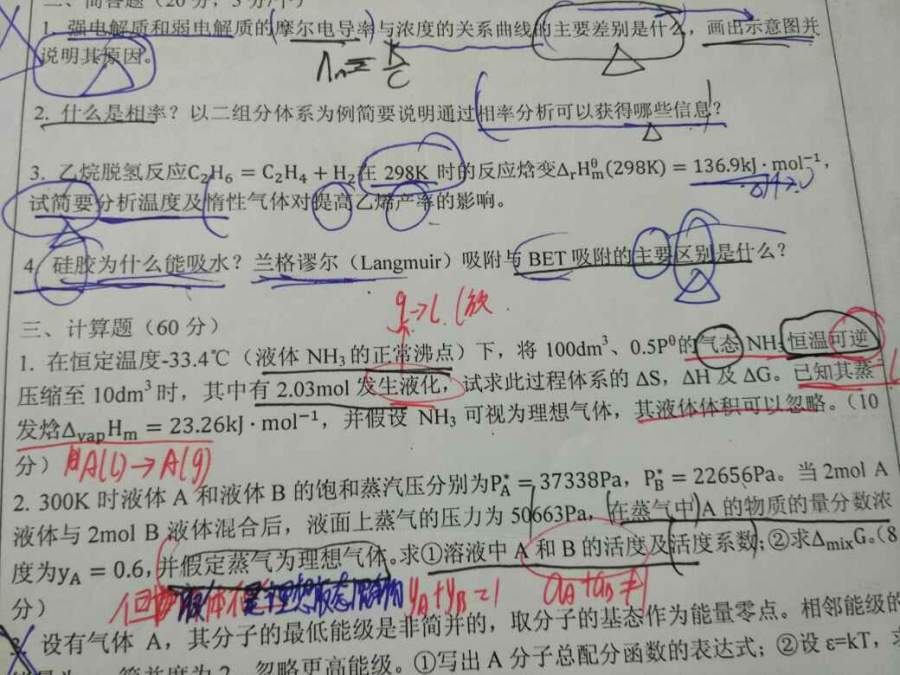 二、简答题（20分，5分/个）
1. 强电解质和弱电解质的摩尔电导率与浓度的关系曲线的主要差别是什么，画出示意图并
说明其原因。
Λm = K/C
2. 什么是相率？以二组分体系为例简要说明通过相率分析可以获得哪些信息？
3. 乙烷脱氢反应C₂H₆ = C₂H₄ + H₂在 298K 时的反应焓变ΔᵣHₘ^θ(298K) = 136.9kJ·mol⁻¹，
试简要分析温度及惰性气体对提高乙烯产率的影响。
4. 硅胶为什么能吸水？兰格谬尔（Langmuir）吸附与 BET 吸附的主要区别是什么？
g→l (放
三、计算题（60 分）
1. 在恒定温度-33.4℃（液体 NH₃的正常沸点）下，将 100dm³、0.5P⁰的气态 NH₃恒温可逆
压缩至 10dm³时，其中有 2.03mol 发生液化，试求此过程体系的 ΔS，ΔH 及 ΔG。已知其蒸
发焓ΔvapHm = 23.26kJ·mol⁻¹，并假设 NH₃ 可视为理想气体，其液体体积可以忽略。（10
分） A(l)→A(g)
2. 300K 时液体 A 和液体 B 的饱和蒸汽压分别为P*A = 37338Pa，P*B = 22656Pa。当 2mol A
液体与 2mol B 液体混合后，液面上蒸气的压力为 50663Pa，在蒸气中 A 的物质的量分数浓
度为yA = 0.6，并假定蒸气为理想气体。求①溶液中 A 和 B 的活度及活度系数；②求ΔmixG。（8
分） 但 液体不是理想液态混合物 yA+yB=1 aA+aB≠1
3. 设有气体 A，其分子的最低能级是非简并的，取分子的基态作为能量零点。相邻能级的
简并度为 2，忽略更高能级。①写出 A 分子总配分函数的表达式；②设 ε=kT，